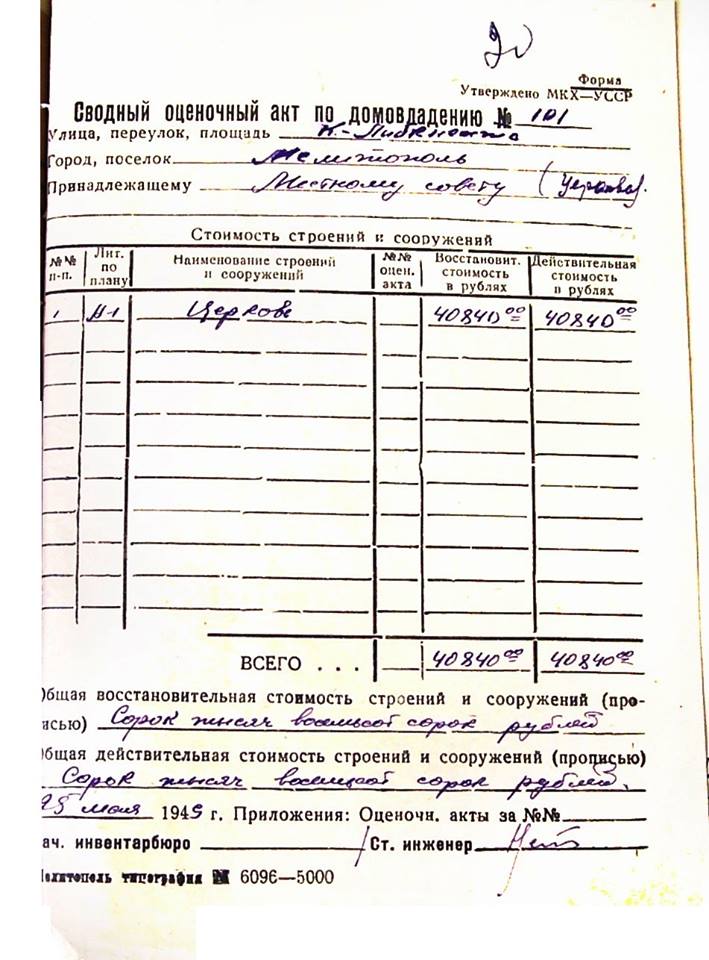 20
Форма
Утверждено МКХ—УССР
Сводный оценочный акт по домовдадению № 101
Улица, переулок, площадь К.-Либкнехта
Город, поселок Мелитополь
Принадлежащему Местному совету (церковь).
Стоимость строений и сооружений
№№ п-п. Лит. по плану Наименование строений и сооружений №№ оцен. акта Восстановит. стоимость в рублях Действительная стоимость в рублях
1 А-1 Церковь 40840 00 40840 00
ВСЕГО . . . 40840 00 40840 00
Общая восстановительная стоимость строений и сооружений (про-
исью) Сорок тысяч восемьсот сорок рублей
Общая действительная стоимость строений и сооружений (прописью)
Сорок тысяч восемьсот сорок рублей.
25 1945 г. Приложения: Оценочн. акты за №№
ач. инвентарбюро Ст. инженер
елитополь типография № 6096—5000